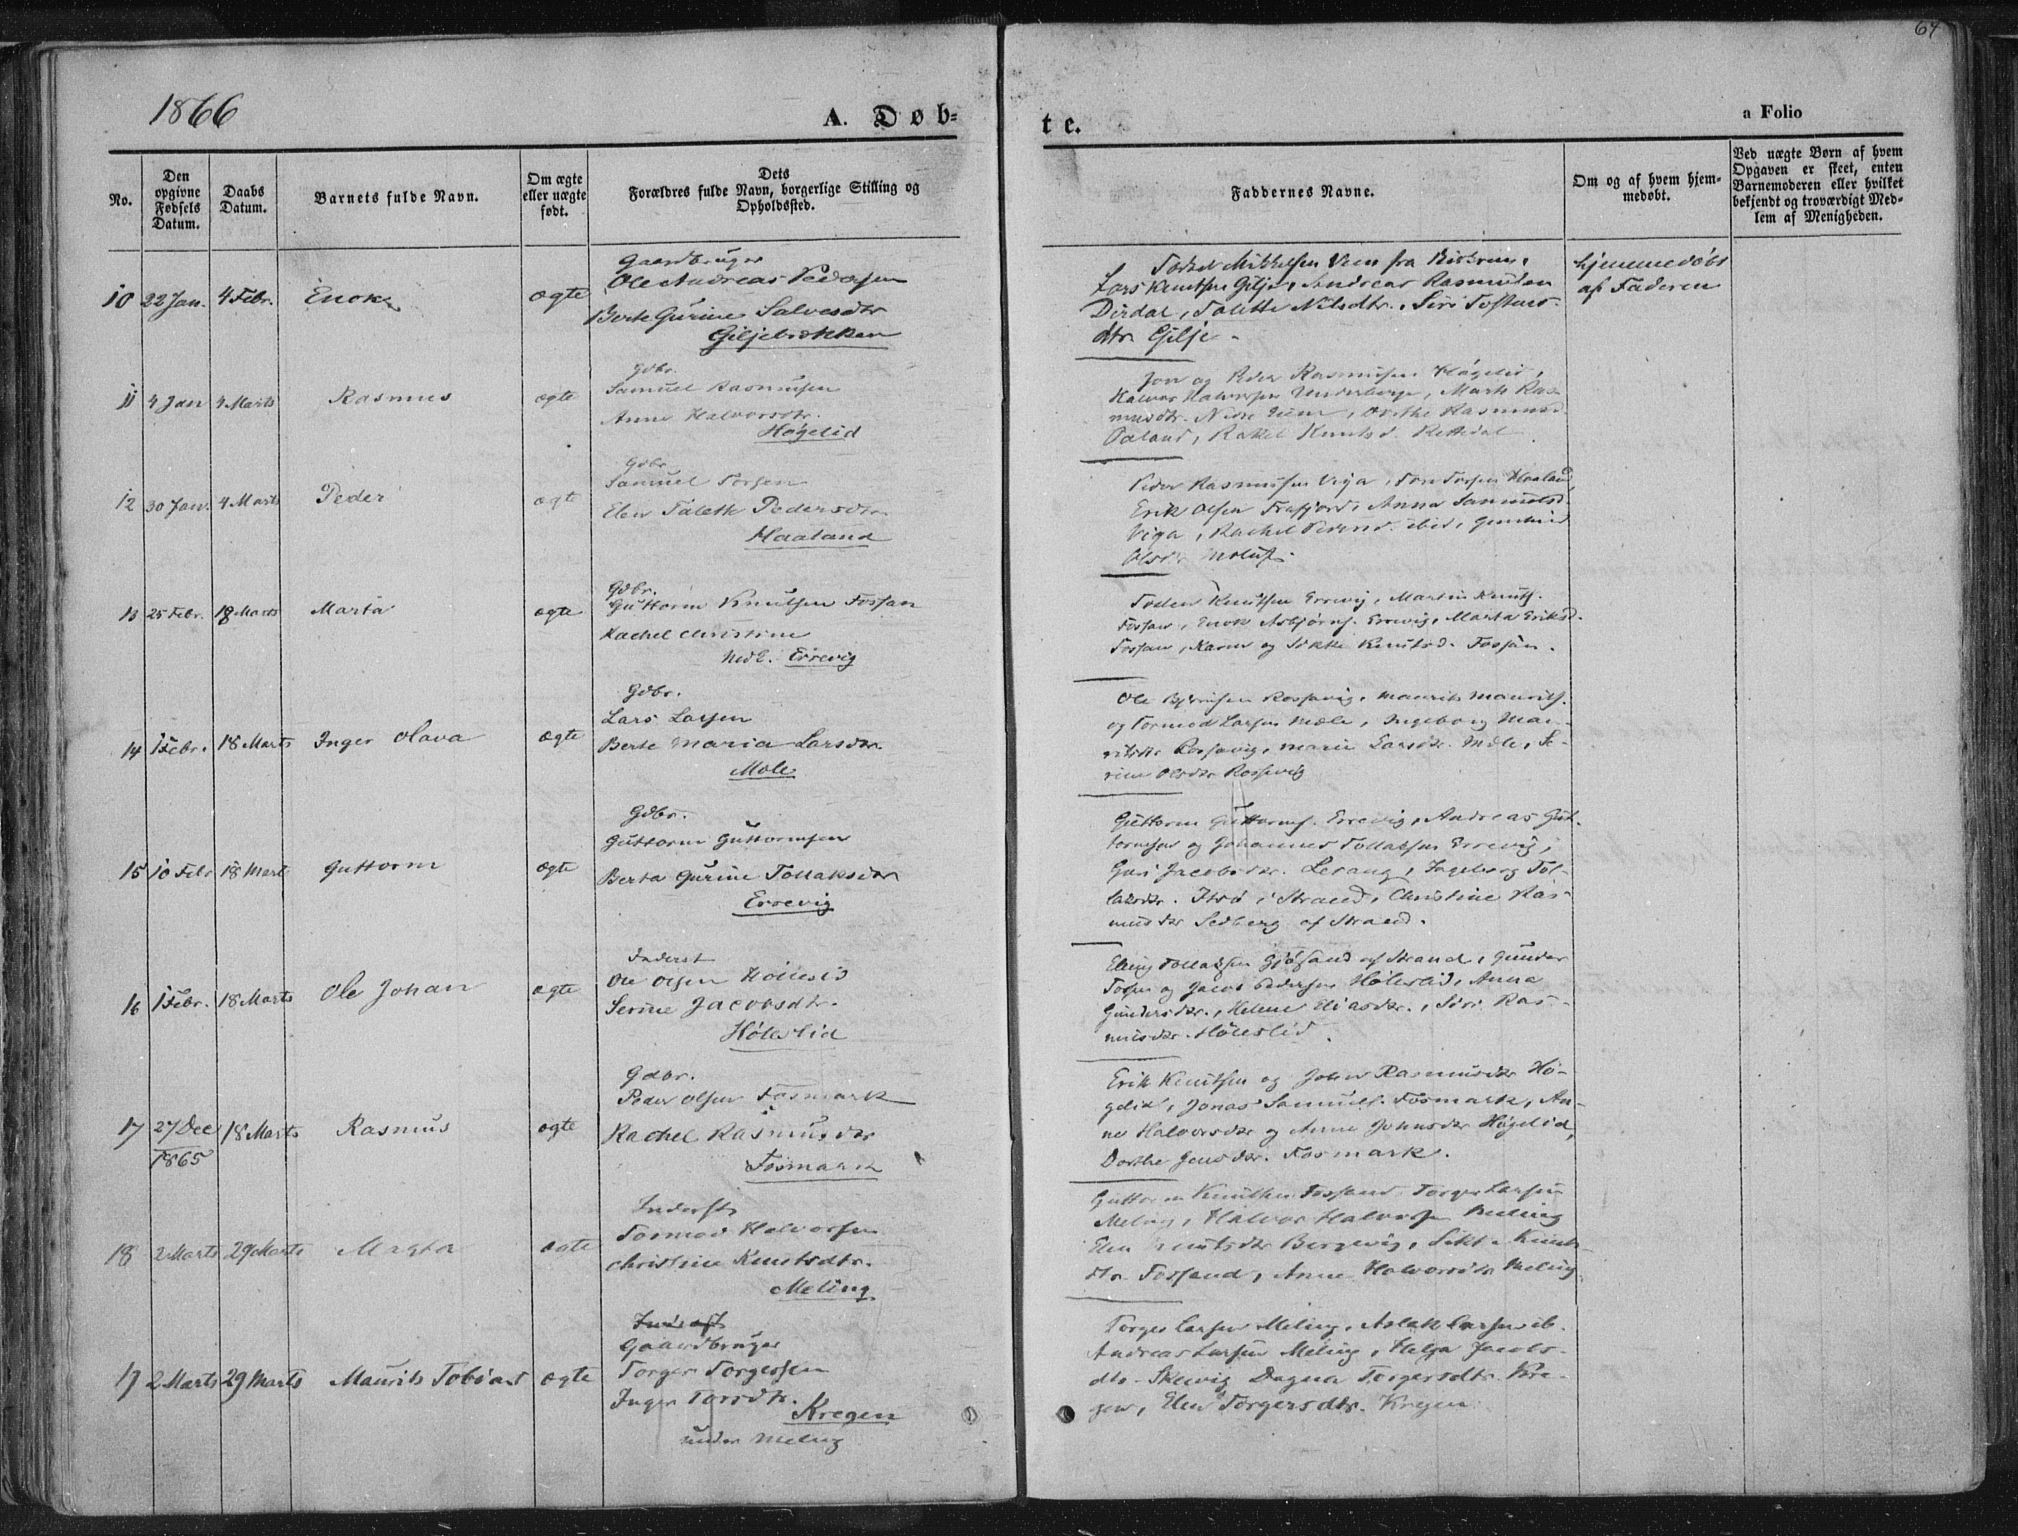 67
1866
A. Døb-
te.
a Folio
No.
Den opgivne Fødsels Datum.
Daabs Datum.
Barnets fulde Navn.
Om ægte eller nægte født.
Dets Forældres fulde Navn, borgerlige Stilling og Opholdssted.
Faddernes Navne.
Om og af hvem hjemmedøbt.
Ved uægte Børn af hvem Opgaven er skeet, enten Barnemoderen eller hvilket bekjendt og troværdigt Medlem af Menigheden.
10 22 Jan. 4 Febr. Enok ægte
Gaardbruger
Ole Andreas Pedersen
Berte Gurine Salvesdtr
Giljebrækken
Mikkelsen Veen fra
Lars Knutsen Gilje, Andreas Rasmusen
Dirdal, Talette Nilsdtr., Siri Tostens-
dtr Gilje.
hjemmedøbt
af Faderen
11 4 Jan 4 Marts Rasmus ægte
Gdbr.
Samuel Rasmusen
Anne Halvorsdtr.
Høgelid
Jon og Peder Rasmusen Høgelid,
Halvor Halvorsen Underberge, Marte Ras-
musdtr. Nedre, Rasmusd
Aaland, Rakel Knutsd. Rettedal
12 30 Jan. 4 Marts Peder ægte
Gdbr.
Samuel Torsen
Elen Talette Pedersdtr
Haaland
Peder Rasmusen Viga, Tore Torsen Haaland,
Erik Olsen Frafjord, Anna Samuelsd.
Viga, Rachel Pedersd. ibid, Gunhild
Olsdtr
13 25 Febr. 18 Marts Marta ægte
Gdbr.
Guttorm Knutsen Fossan
Rachel Christine
Errevig
Knutsen Errevig, Martin Knuts.
Fossan, Enok Asbjørns. Errevig, Marta Eriksd.
Fossan, Karen og Sikke Knutsd. Fossan.
14 1 Febr. 18 Marts Inger Olava ægte
Gdbr.
Lars Larsen
Berte Maria Larsdtr.
Mæle
Ole Bjørnsen Rossavig, Maurits Maurits.
og Tormod Larsen Mæle, Ingeborg Mau-
ritsdtr Rossavig, Marie Larsdtr. Mæle, Se-
rine Olsdtr Rossavig
15 10 Febr 18 Mart Guttorm ægte
Gdbr.
Guttorm Guttormsen
Berta Gurine Tollaksdtr
Errevig
Guttorm Guttorms. Errevig, Andreas Gut-
tormsen og Johannes Tollaksen Errevig,
Guri Jacobsdtr. Lerang, Ingeborg Tol-
laksdtr. i Strand, Christine Ras-
musdtr Sedberg af Strand.
16 1 Febr. 18 Marts Ole Johan ægte
Inderst
Ole Olsen Høleslid
Serine Jacobsdtr.
Høleslid
Elling Tollaksen af Strand, Gunder
Torsen og Jacob Pedersen Høleslid, Anna
Gundersdtr., Helene Eliasdtr., Siri Ras-
musdtr. Høleslid.
17 27 Dec 1865 18 Marts Rasmus ægte
Gdbr.
Peder Olsen Fosmark
Rachel Rasmusdtr
Fosmark
Erik Knutsen og Rasmusdtr Hø-
gelid, Jonas Samuels. Fosmark, An-
ne Halvorsdtr og Anne Johnsdtr Høgelid,
Dorthe Jensdtr. Fosmark.
18 2 Marts 29 Marts Marta ægte
Inderst
Tormod Halvorsen
Christine Knutsdtr.
Meling
Guttorm Knutsen Fossand, Torger Larsen
Meling, Halvor Halvorsen Meling
Elen Knutsdtr Bergevig, Sikke Knuts-
dtr Fossand, Anne Halvorsdtr Meling
19 2 Marts 29 Marts Maurits Tobias ægte
Inderst
Gaardbruger
Torger Torgersen
Inger Torsdtr.
Kregen
under Meling
Torger Larsen Meling, Aslak Larsen ib.
Andreas Larsen Meling, Helga Jacobs-
dtr. Skevig Dagna Torgersdtr. Kre-
gen, Elen Torgersdtr. Kregen